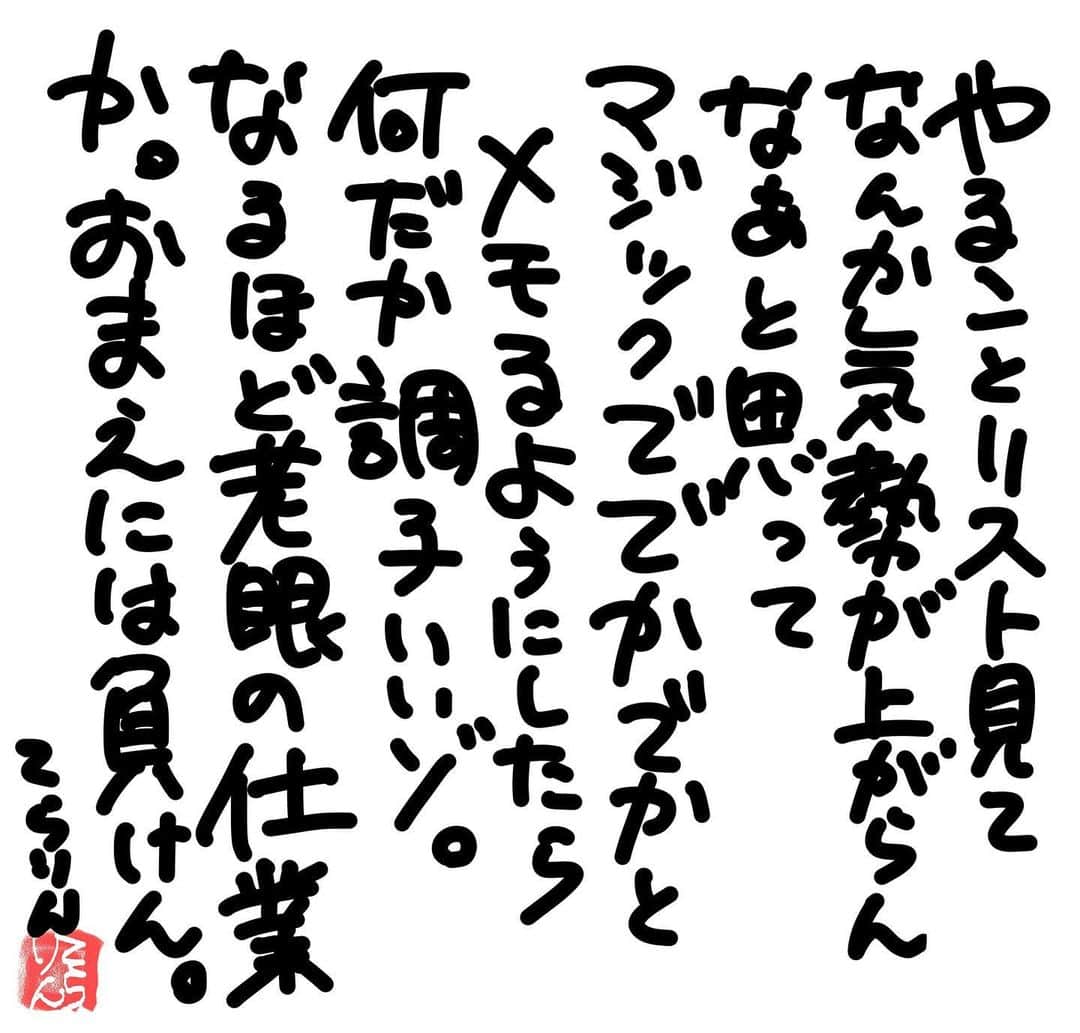 やることリスト見て
なんか気勢が上がらん
なぁと思って
マジックででかでかと
メモるようにしたら
何だか調子いいゾ。
なるほど老眼の仕業
か。おまえには負けん。
てらりん
てらりん